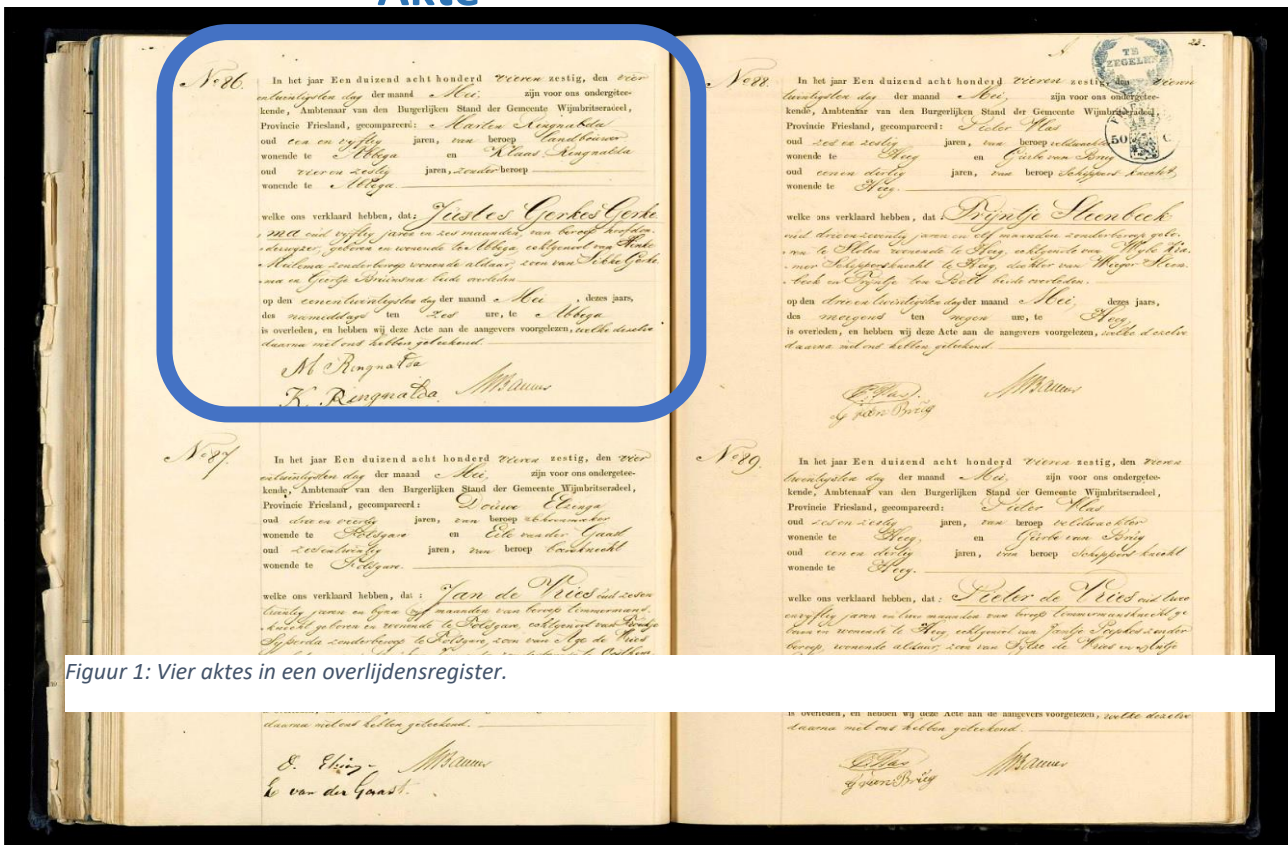 Akte
No 86.
In het jaar Een duizend acht honderd vieren zestig, den vier
entwintigsten dag der maand Mei, zijn voor ons ondergetee-
kende, Ambtenaar van den Burgerlijken Stand der Gemeente Wijmbritseradeel,
Provincie Friesland, gecompareerd: Marten Ringnalda
oud een en vyftig jaren, van beroep landbouwer
wonende te Abbega en Klaas Ringnalda
oud vier en zestig jaren, zonder beroep
wonende te Abbega
welke ons verklaard hebben, dat: Justes Gerkes Gerke
ma oud vyftig jaren en zes maanden, van beroep hoofdon-
derwyzer, geboren en wonende te Abbega, echtgenoot van Hinke
Meilema zonder beroep wonende aldaar, zoon van Sikke Gerke
ma en Geertje Bruinsma beide overleden
op den eenentwintigsten dag der maand Mei, dezes jaars,
des namiddags ten zes ure, te Abbega
is overleden, en hebben wij deze Acte aan de aangevers voorgelezen, welke dezelve
daarna met ons hebben geteekend.
M Ringnalda
K. Ringnalda
No 87.
In het jaar Een duizend acht honderd vieren zestig, den vier
entwintigsten dag der maand Mei, zijn voor ons ondergetee-
kende, Ambtenaar van den Burgerlijken Stand der Gemeente Wijmbritseradeel,
Provincie Friesland, gecompareerd: Douwe Elzinga
oud drie en veertig jaren, van beroep schoenmaker
wonende te Folsgare en Eile van der Gaast
oud zesentwintig jaren, van beroep boereknecht
wonende te Folsgare.
welke ons verklaard hebben, dat: Jan de Vries oud zesen
twintig jaren en byna maanden van beroep timmermans
knecht geboren en wonende te Folsgare, echtgenoot van
Sypserda zonder beroep te Folsgare, zoon van Age de Vries
Figuur 1: Vier aktes in een overlijdensregister.
daarna met ons hebben geteekend.
E van der Gaast.
23.
TE
ZEGELEN
50 C
No 88.
In het jaar Een duizend acht honderd vieren zestig, den vieren
twintigsten dag der maand Mei, zijn voor ons ondergetee-
kende, Ambtenaar van den Burgerlijken Stand der Gemeente Wijmbritseradeel,
Provincie Friesland, gecompareerd: Pieter Vlas
oud zes en zestig jaren, van beroep veldwachter
wonende te Heeg en Gürbe van Brug
oud een en dertig jaren, van beroep Schippers knecht,
wonende te Heeg.
welke ons verklaard hebben, dat: Trijntje Steenbeek
oud drieenzeventig jaren en elf maanden zonder beroep gebo-
ren te Sloten wonende te Heeg, echtgenoot van Wybe Kra
mer Schippersknecht te Heeg, dochter van Steen
beek en Trijntje ten beide overleden
op den drieentwintigsten dag der maand Mei, dezes jaars,
des morgens ten negen ure, te Heeg,
is overleden, en hebben wij deze Acte aan de aangevers voorgelezen, welke dezelve
daarna met ons hebben geteekend.
P. Vlas.
G van Brug
No 89.
In het jaar Een duizend acht honderd vieren zestig, den vieren
twintigsten dag der maand Mei, zijn voor ons ondergetee-
kende, Ambtenaar van den Burgerlijken Stand der Gemeente Wijmbritseradeel,
Provincie Friesland, gecompareerd: Pieter Vlas
oud zes en zestig jaren, van beroep veldwachter
wonende te Heeg, en Gürbe van Brug
oud een en dertig jaren, van beroep Schippers knecht
wonende te Heeg.
welke ons verklaard hebben, dat: Pieter de Vries oud twee
envyftig jaren en twee maanden van beroep timmermansknecht ge
boren en wonende te Heeg, echtgenoot van Jantje zonder
beroep, wonende aldaar, zoon van Sytse de Vries en
is overleden, en hebben wij deze Acte aan de aangevers voorgelezen, welke dezelve
daarna met ons hebben geteekend.
P. Vlas
G van Brug